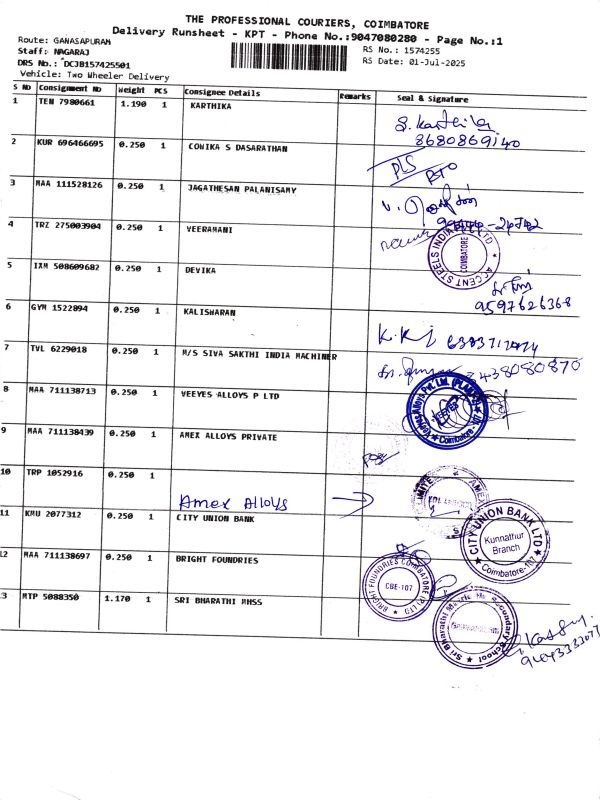 THE PROFESSIONAL COURIERS, COIMBATORE
Delivery Runsheet - KPT - Phone No.:9047080280 - Page No.:1
Route: GANASAPURAM
RS No.: 1574255
Staff: NAGARAJ
RS Date: 01-Jul-2025
DRS No.: DCJB157425501
Vehicle: Two Wheeler Delivery
S No Consignment No Weight PCS Consignee Details Remarks Seal & Signature
1 TEN 7980661 1.190 1 KARTHIKA
S. Karthika
8680869140
2 KUR 696466695 0.250 1 CONIKA S DASARATHAN
3 MAA 111528126 0.250 1 JAGATHESAN PALANISAMY
4 TRZ 275003904 0.250 1 VEERAMANI
ACCENT STEELS INDIA LTD
COIMBATORE
5 IXM 508609682 0.250 1 DEVIKA
9597626368
6 GYM 1522894 0.250 1 KALISWARAN
7 TVL 6229018 0.250 1 M/S SIVA SAKTHI INDIA MACHINER
8438080870
8 MAA 711138713 0.250 1 VEEYES ALLOYS P LTD
Veeyes Alloys Pvt. Ltd.
VEEYES
Coimbatore
9 MAA 711138439 0.250 1 AMEX ALLOYS PRIVATE
10 TRP 1052916 0.250 1
Amex Alloys
11 KMU 2077312 0.250 1 CITY UNION BANK
CITY UNION BANK LTD
Kunnathur
Branch
Coimbatore-107
12 MAA 711138697 0.250 1 BRIGHT FOUNDRIES
BRIGHT FOUNDRIES COIMBATORE (P) LTD
CBE-107
13 MTP 5088350 1.170 1 SRI BHARATHI MHSS
Sri Bharathi Matric Hr. Secondary School